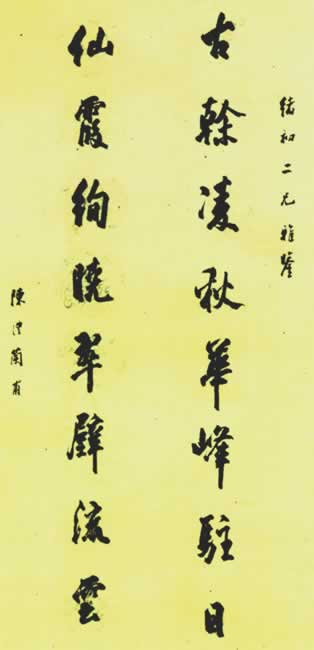 初二兄雅鑒
古榦凌秋華峰駐日
仙霞絢曉翠壁流雲
陳澧蘭甫